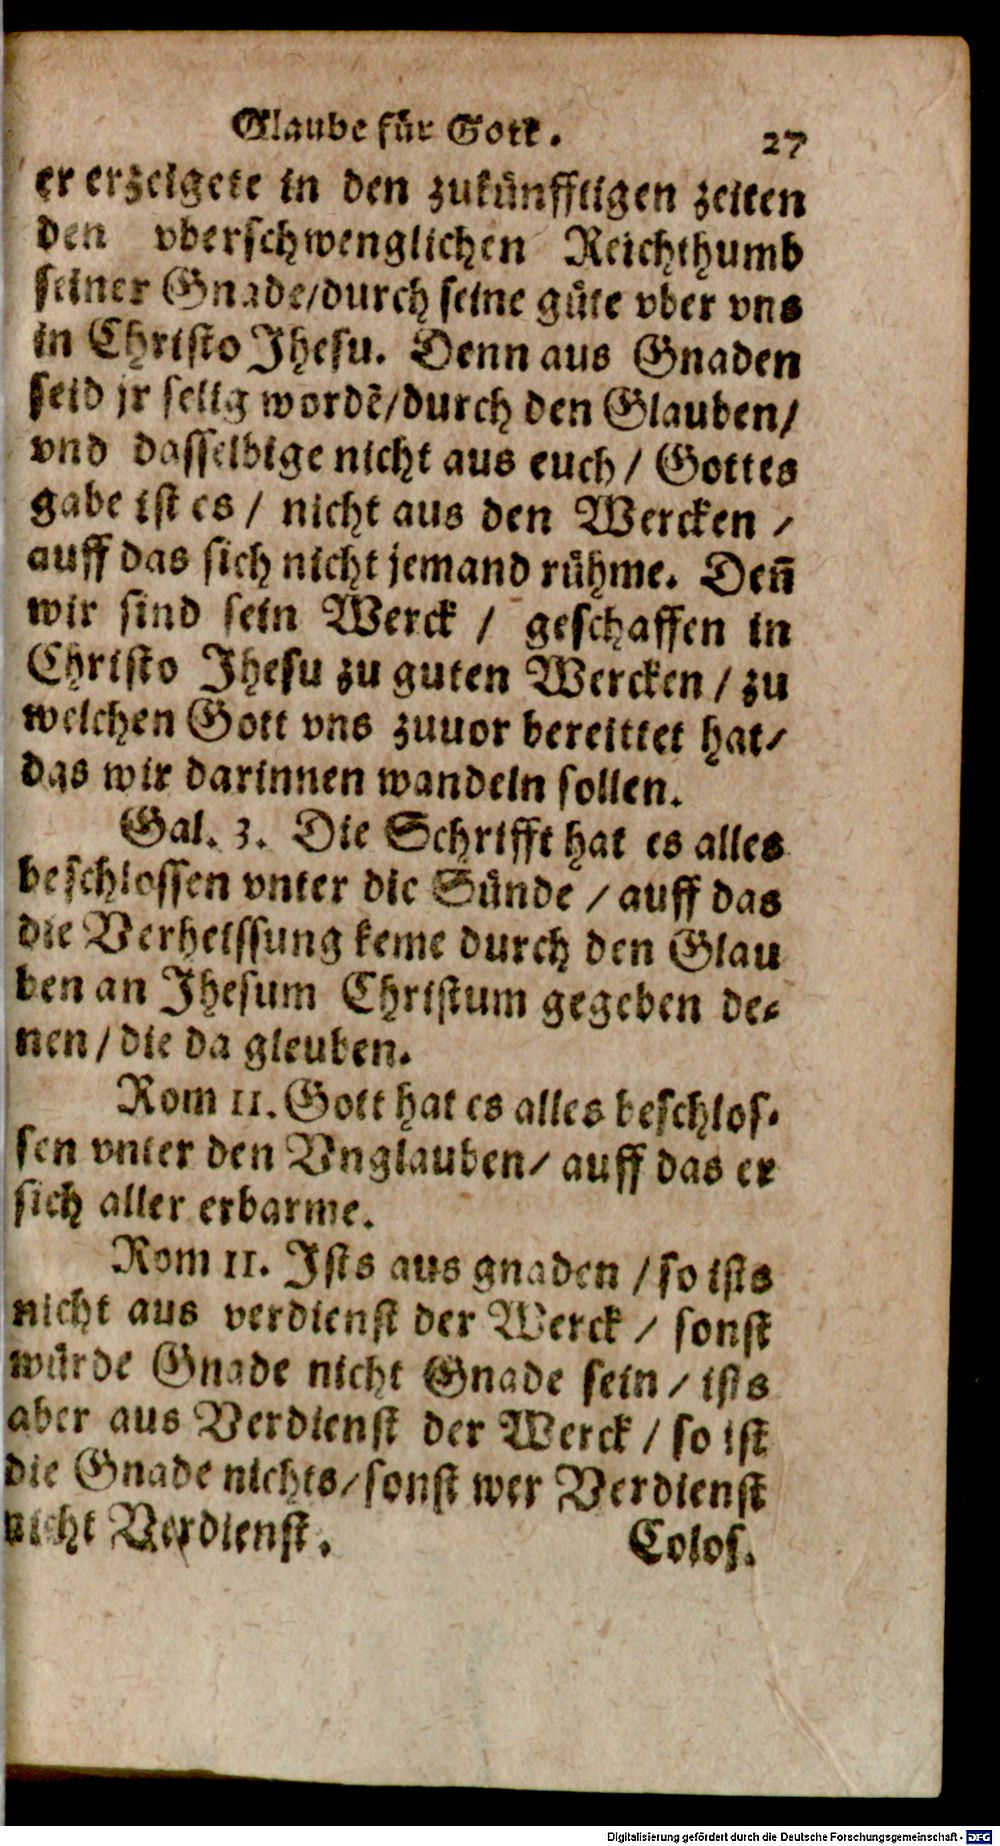 Glaube für Gott. 27
er erzeigete in den zukünfftigen zeiten
den vberschwenglichen Reichthumb
seiner Gnade/durch seine güte vber vns
in Christo Jhesu. Denn aus Gnaden
seid jr selig wordē/durch den Glauben/
vnd dasselbige nicht aus euch/ Gottes
gabe ist es / nicht aus den Wercken /
auff das sich nicht jemand rühme. Deñ
wir sind sein Werck / geschaffen in
Christo Jhesu zu guten Wercken / zu
welchen Gott vns zuuor bereittet hat/
das wir darinnen wandeln sollen.
Gal. 3. Die Schrifft hat es alles
beschlossen vnter die Sünde / auff das
die Verheissung keme durch den Glau
ben an Jhesum Christum gegeben de-
nen / die da gleuben.
Rom 11. Gott hat es alles beschlos-
sen vnter den Vnglauben/ auff das er
sich aller erbarme.
Rom 11. Jsts aus gnaden / so ists
nicht aus verdienst der Werck / sonst
würde Gnade nicht Gnade sein / ists
aber aus Verdienst der Werck / so ist
die Gnade nichts/sonst wer Verdienst
nicht Verdienst. Colos.
Digitalisierung gefördert durch die Deutsche Forschungsgemeinschaft - DFG